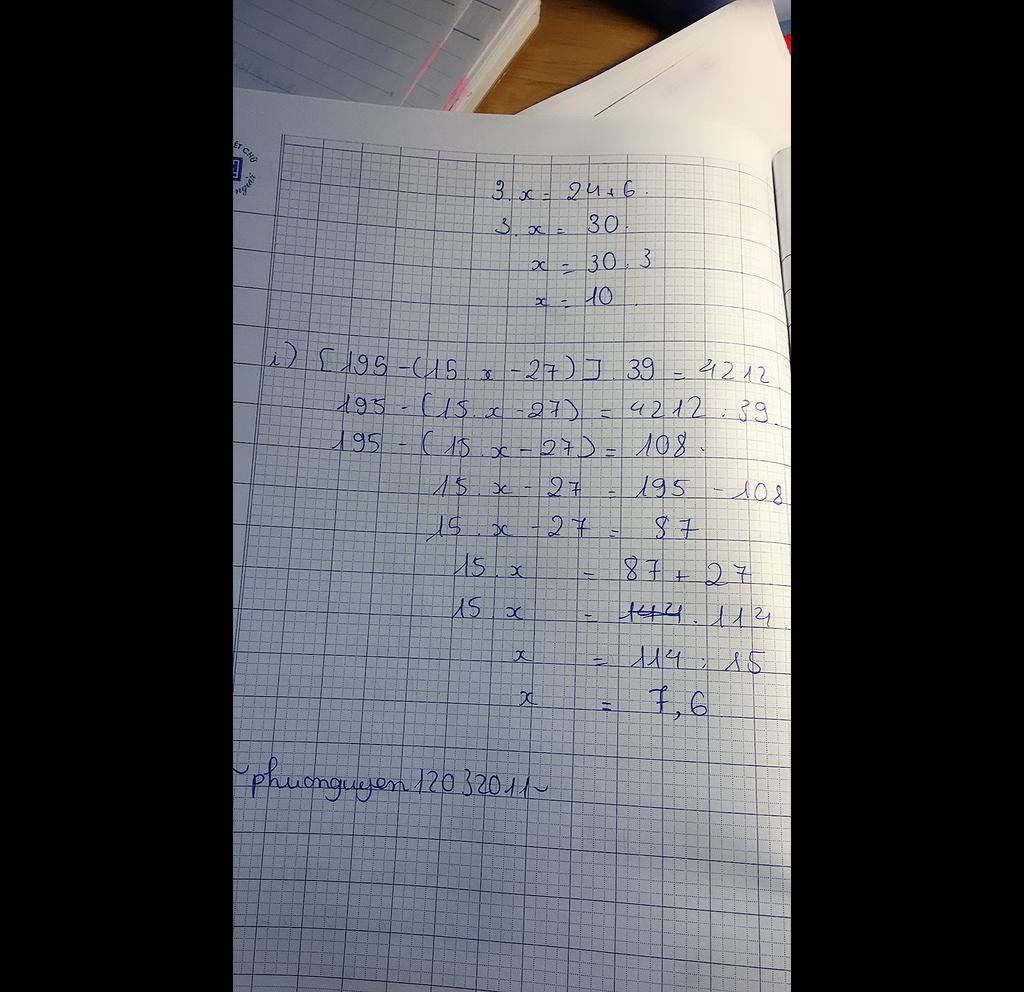 ẾT CHỮ
người
3.x = 24+6.
3.x = 30.
x = 30:3
x = 10.
i) [195-(15.x-27)].39 = 4212
195-(15.x-27) = 4212:39.
195-(15.x-27) = 108.
15.x-27 = 195-108
15.x-27 = 87
15.x = 87+27
15.x = 144.114
x = 114:15
x = 7,6
~phuonguyen12032011~